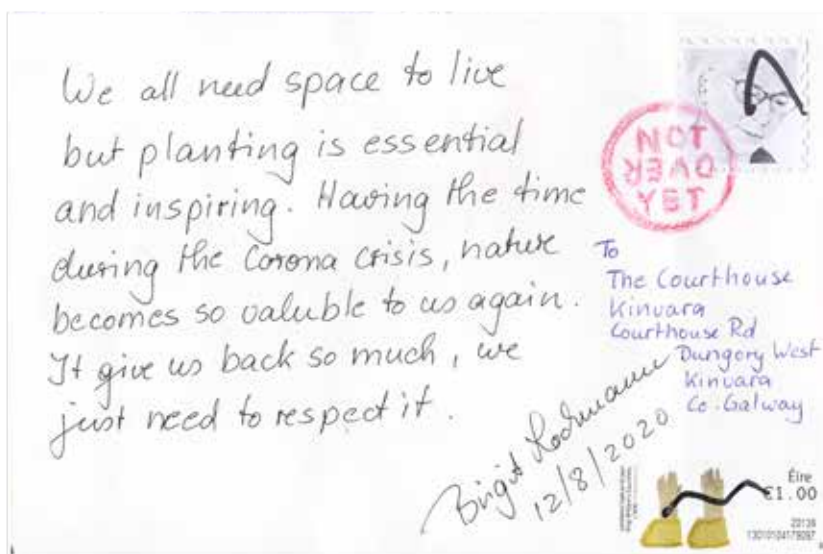 We all need space to live
but planting is essential
and inspiring. Having the time
during the Corona crisis, nature
becomes so valuble to us again.
It give us back so much, we
just need to respect it.
Birgit
12/8/2020
NOT
OVER
YET
To
The Courthouse
Kinvara
Courthouse Rd
Dungory West
Kinvara
Co. Galway
Éire
€1.00